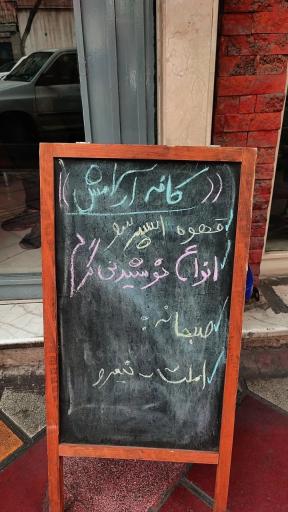 ((کافه آرامش))
قهوه اسپرسو
انواع نوشیدنی گرم
صبحانه:
املت - نیمرو